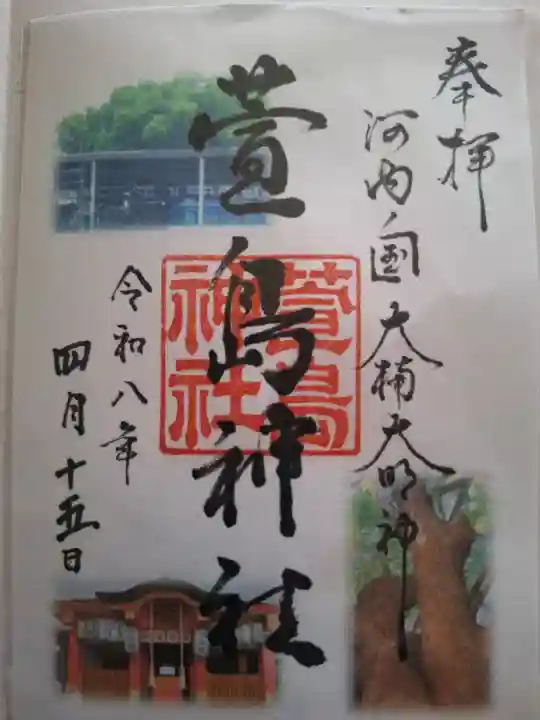 奉拝
河内国大楠大明神
萱島神社
萱島
神社
令和八年
四月十五日